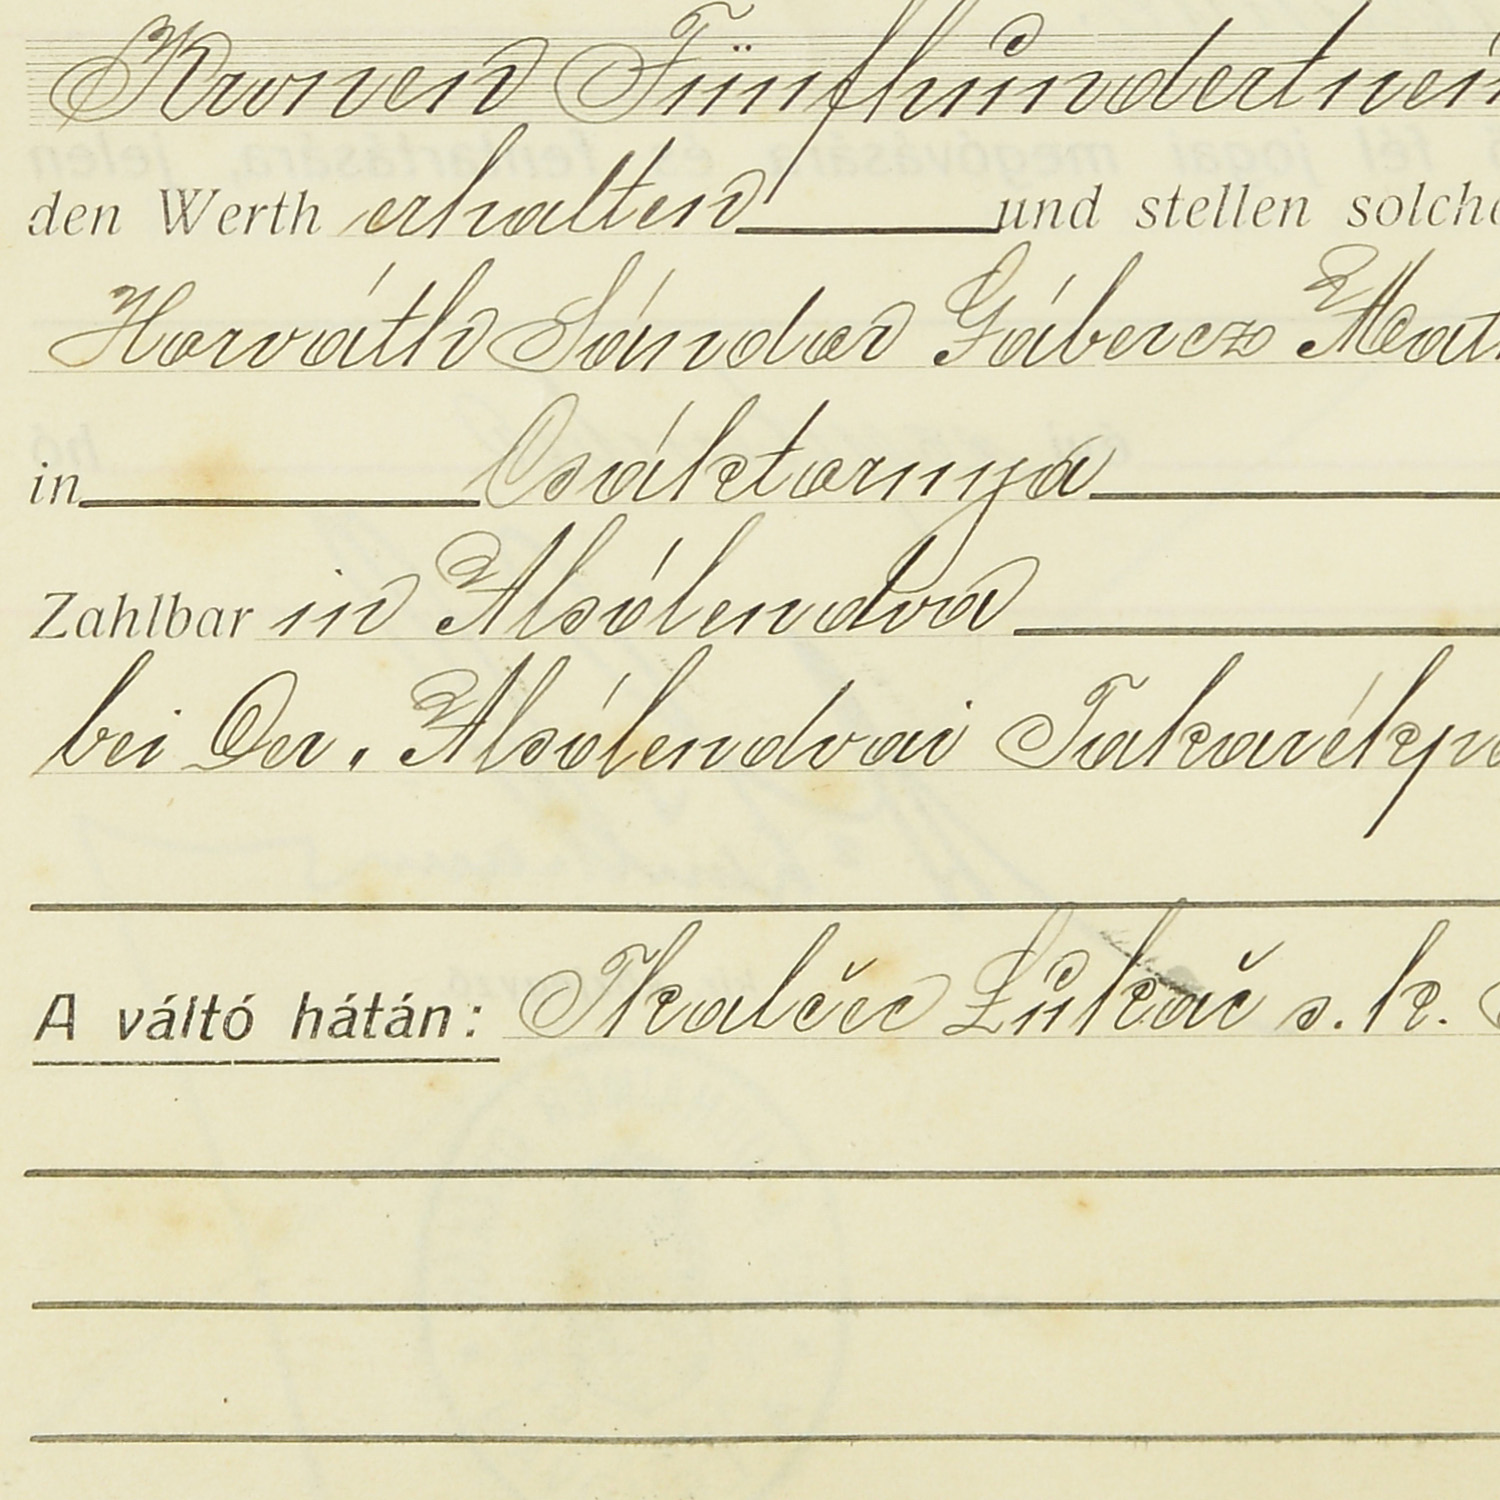 Kronen Fünfhundertneun
den Werth erhalten und stellen solche
Horváth Sándor Gábercz
in Csáktornya
Zahlbar in Alsólendva
bei Der. Alsólendvai Takarékp
A váltó hátán: Tkalčec Lukač s. k.